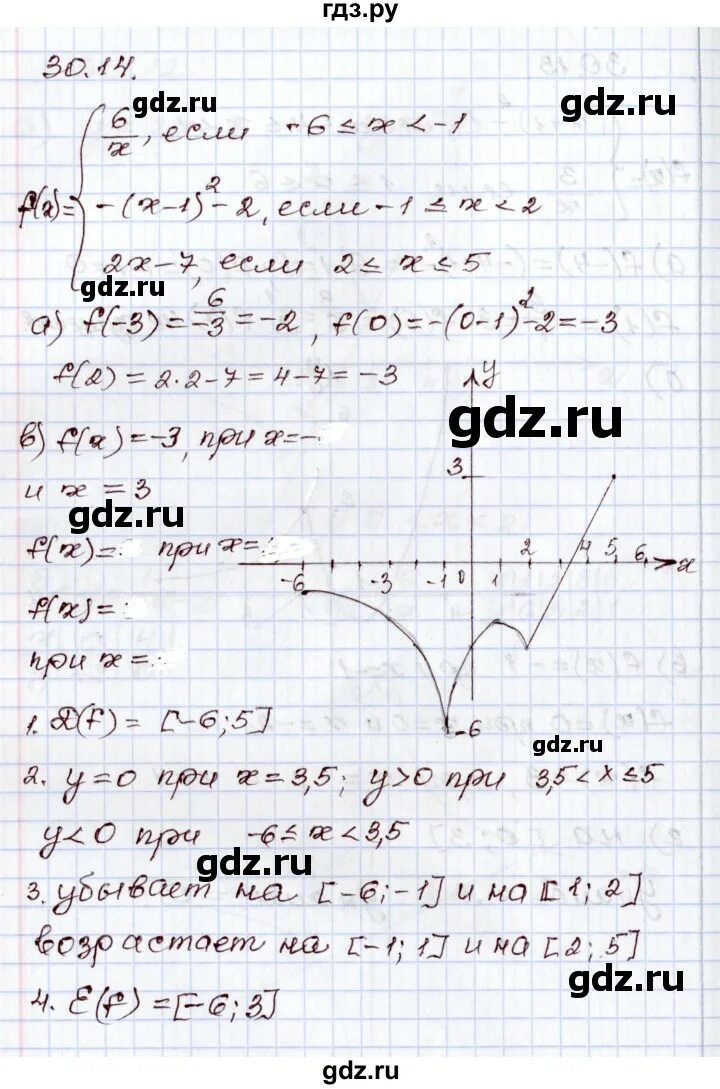 гдз.ру
30.14.
gdz.ru
gdz.ru
6/x, если -6 ≤ x < -1
f(x)= -(x-1)²-2, если -1 ≤ x < 2
2x-7, если 2 ≤ x ≤ 5
gdz.ru
а) f(-3) = 6/-3 = -2, f(0) = -(0-1)²-2 = -3
f(2) = 2·2-7 = 4-7 = -3
y
gdz.ru
в) f(x) = -3, при x = -
3
и x = 3
gdz.ru
f(x) = при x =
-6 -3 -1 0 1 2 4 5 6 x
f(x) =
при x =
-6
1. D(f) = [-6; 5]
gdz.ru
2. y=0 при x = 3,5; y>0 при 3,5 < x ≤ 5
y<0 при -6 ≤ x < 3,5
gdz.ru
3. убывает на [-6; -1] и на [1; 2]
возрастает на [-1; 1] и на [2; 5]
gdz.ru
4. E(f) = [-6; 3]
gdz.ru